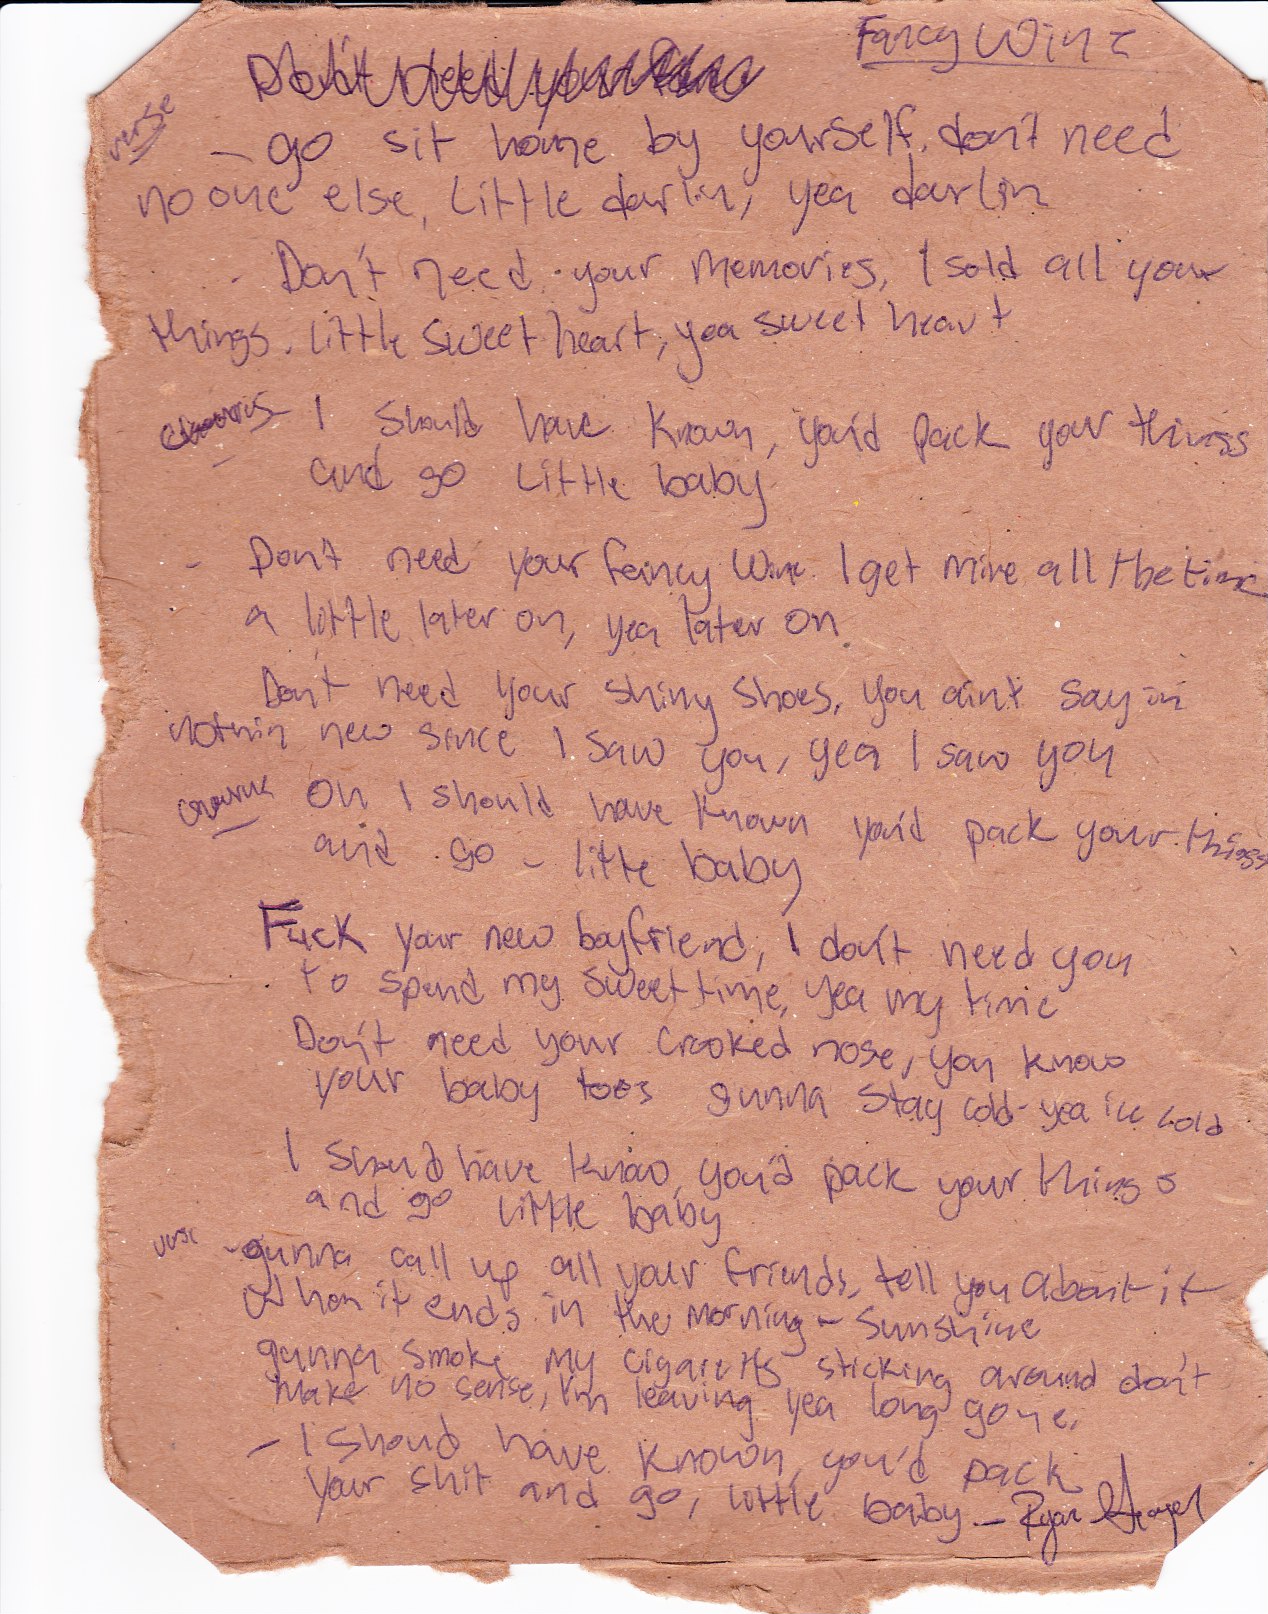 Fancy Wine
Don't need your
verse
- go sit home by yourself. don't need
no one else, Little darlin, yea darlin
- Don't need your memories, I sold all your
things. Little sweet heart, yea sweet heart
chourus I should have known, you'd pack your things
and go Little baby
- Don't need your fancy Wine. I get mine all the time
a little later on, yea later on.
Don't need your shiny shoes, you ain't say in
nothin new since I saw you, yea I saw you
Oh I should have known you'd pack your things
and go - little baby
Fuck your new boyfriend, I don't need you
to spend my sweet time, yea my time
Don't need your crooked nose, you know
your baby toes gunna stay cold - yea ice cold
I should have know you'd pack your things
and go little baby
verse - gunna call up all your friends, tell you about it
when it ends in the morning - sunshine
gunna smoke my cigaretts sticking around don't
make no sense, I'm leaving yea long gone.
- I shoud have known, you'd pack
your shit and go, little baby - Ryan